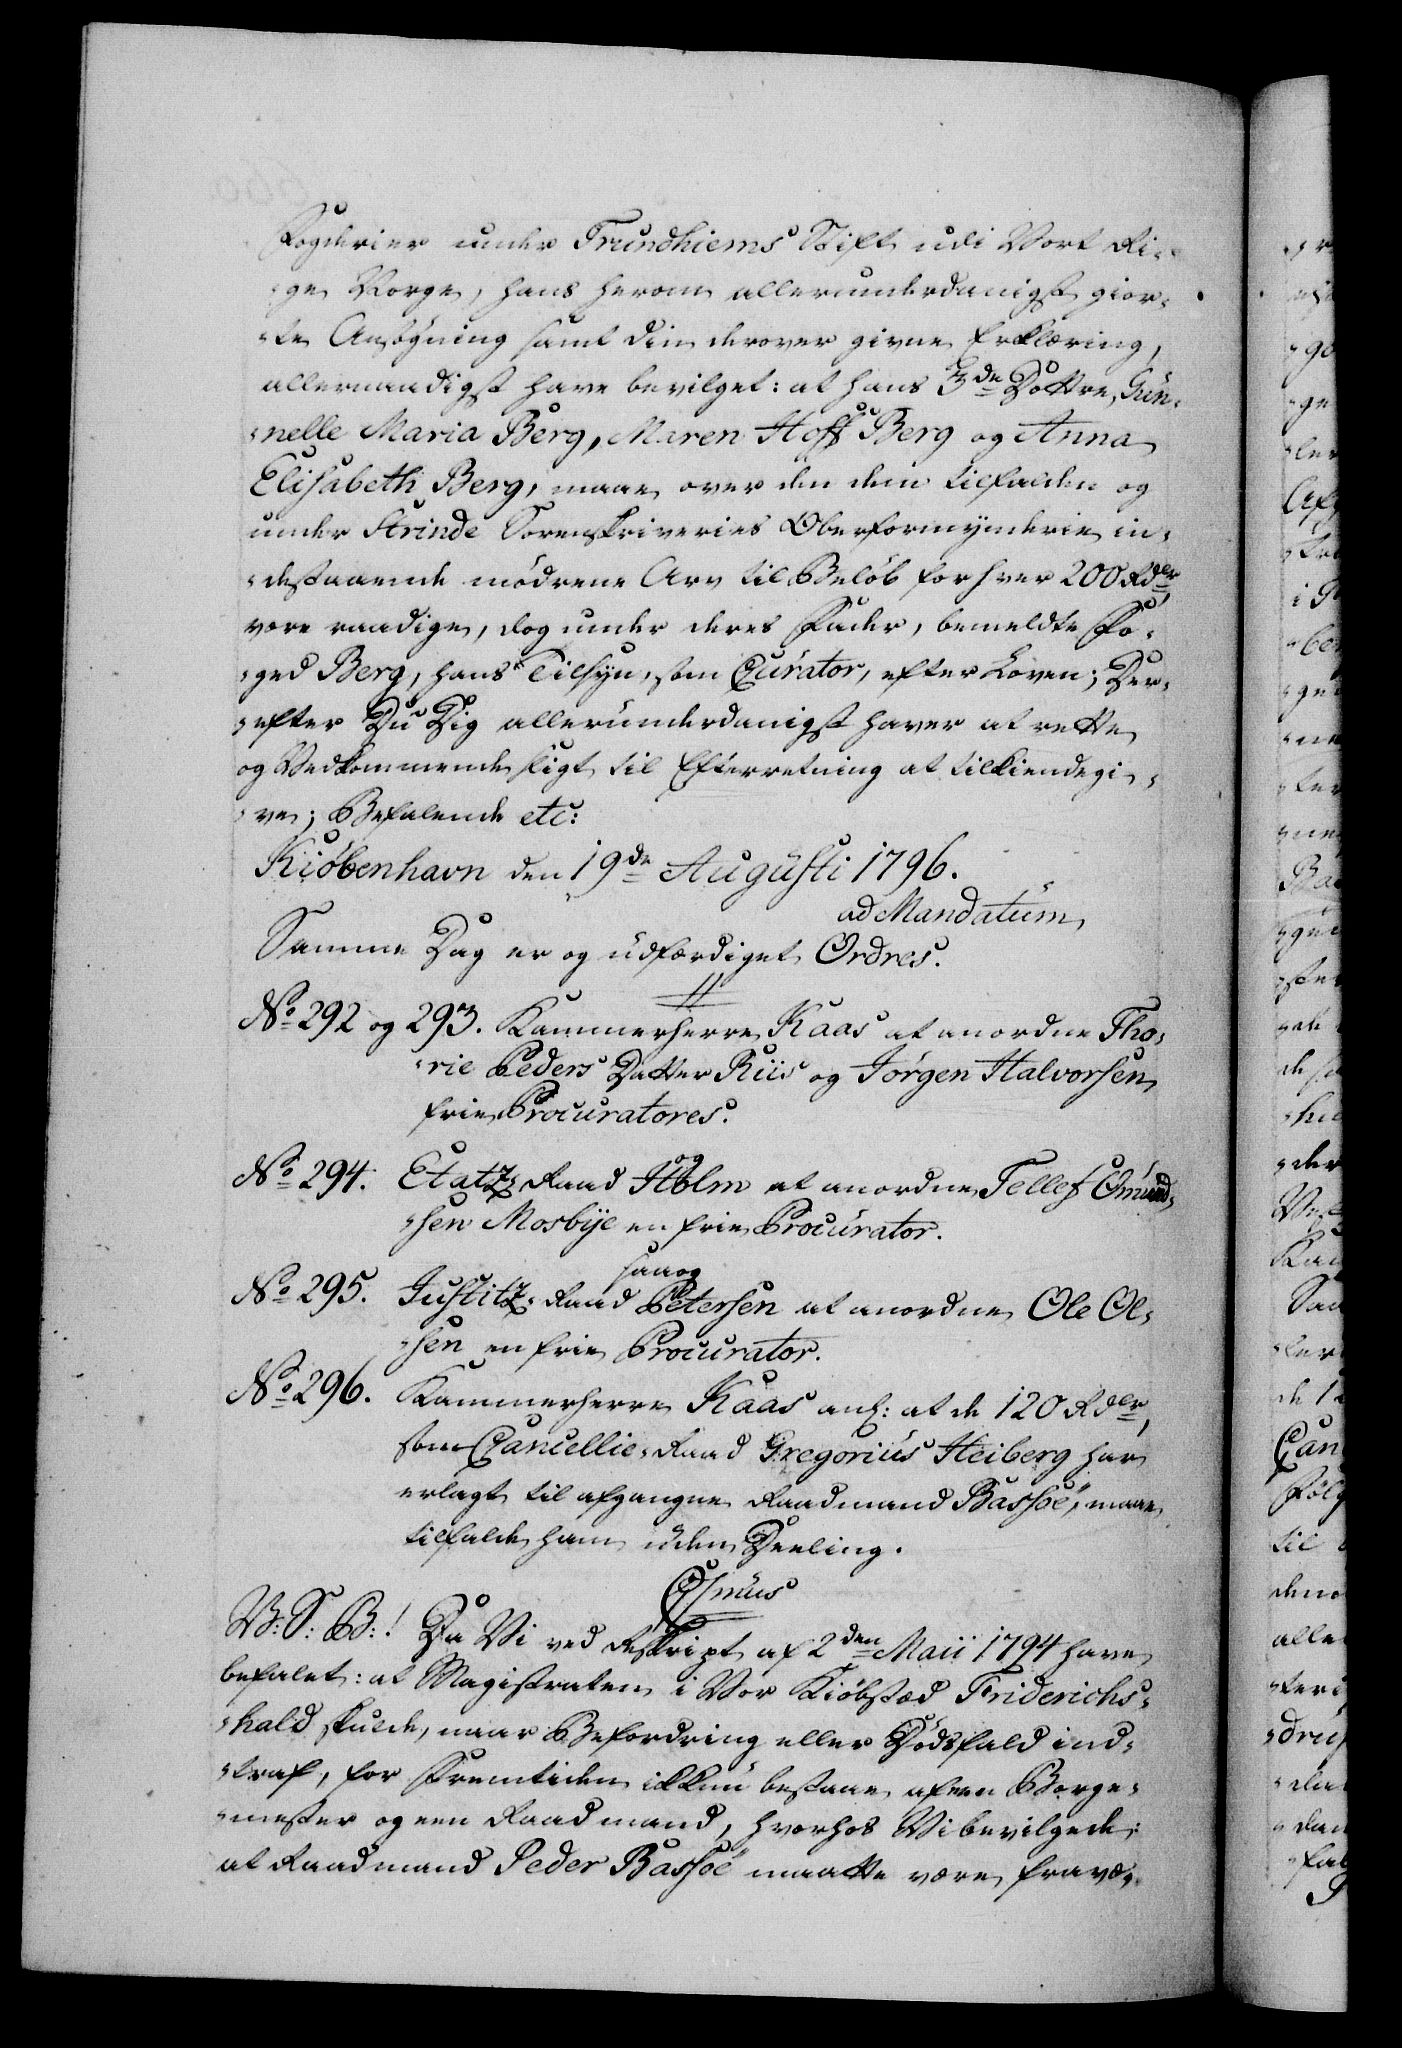 Fogderier under Trundhiems Stift udi Vort Ri-
-ge Norge, hans herom allerunderdanigst gior-
-te Ansøgning samt din derover givne Erklæring,
allernaadigst have bevilget: at hans 3de Døttre, Gün-
-nelle Maria Berg, Maren Hoff Berg og Anna
Elisabeth Berg, maae over den dem tilfalden og
under Strinde Sorenskriveries Oberformynderie in-
-destaaende mødrene Arv til Beløb for hver 200 Rdlr
være raadige, dog under deres Fader, bemeldte Fo-
-ged Berg, hans Tilsyn, som Curator, efter Loven; Der-
-efter Du Dig allerunderdanigst haver at rette
og Vedkommende sligt til Efterretning at tilkiendegi-
-ve; Befalende etc:
Kiøbenhavn den 19de Augusti 1796.
ad Mandatum
Samme Dag er og udfærdiget Ordres.
No 292 og 293. Kammerherre Kaas at anordne Tho-
-rie Peders Datter Riis og Jørgen Halvorsen
frie Procuratores.
No 294. Etatz-Raad Holm og at anordne Tellef Omund-
-sen Mosbye en frie Procurator.
No 295. Justitz-Raad Petersen saa og at anordne Ole Ol-
-sen en frie Procurator.
No 296. Kammerherre Kaas anl: at de 120 Rdlr,
som Cancellie-Raad Gregorius Heiberg har
erlagt til afgangne Raadmand Bassøe, maae
tilfalde ham uden Deeling.
V: S: B:! Da Vi ved Rescript af 2den Maii 1794 have
befalet: at Magistraten i Vor Kiøbstæd Friderichs-
-hald skulde, naar Befordring eller Dødsfald ind-
-traf, for Fremtiden ikkun bestaae af een Borge-
-mester og een Raadmand, hvorhos Vi bevilgede:
at Raadmand Peder Bassøe maatte være fravæ-